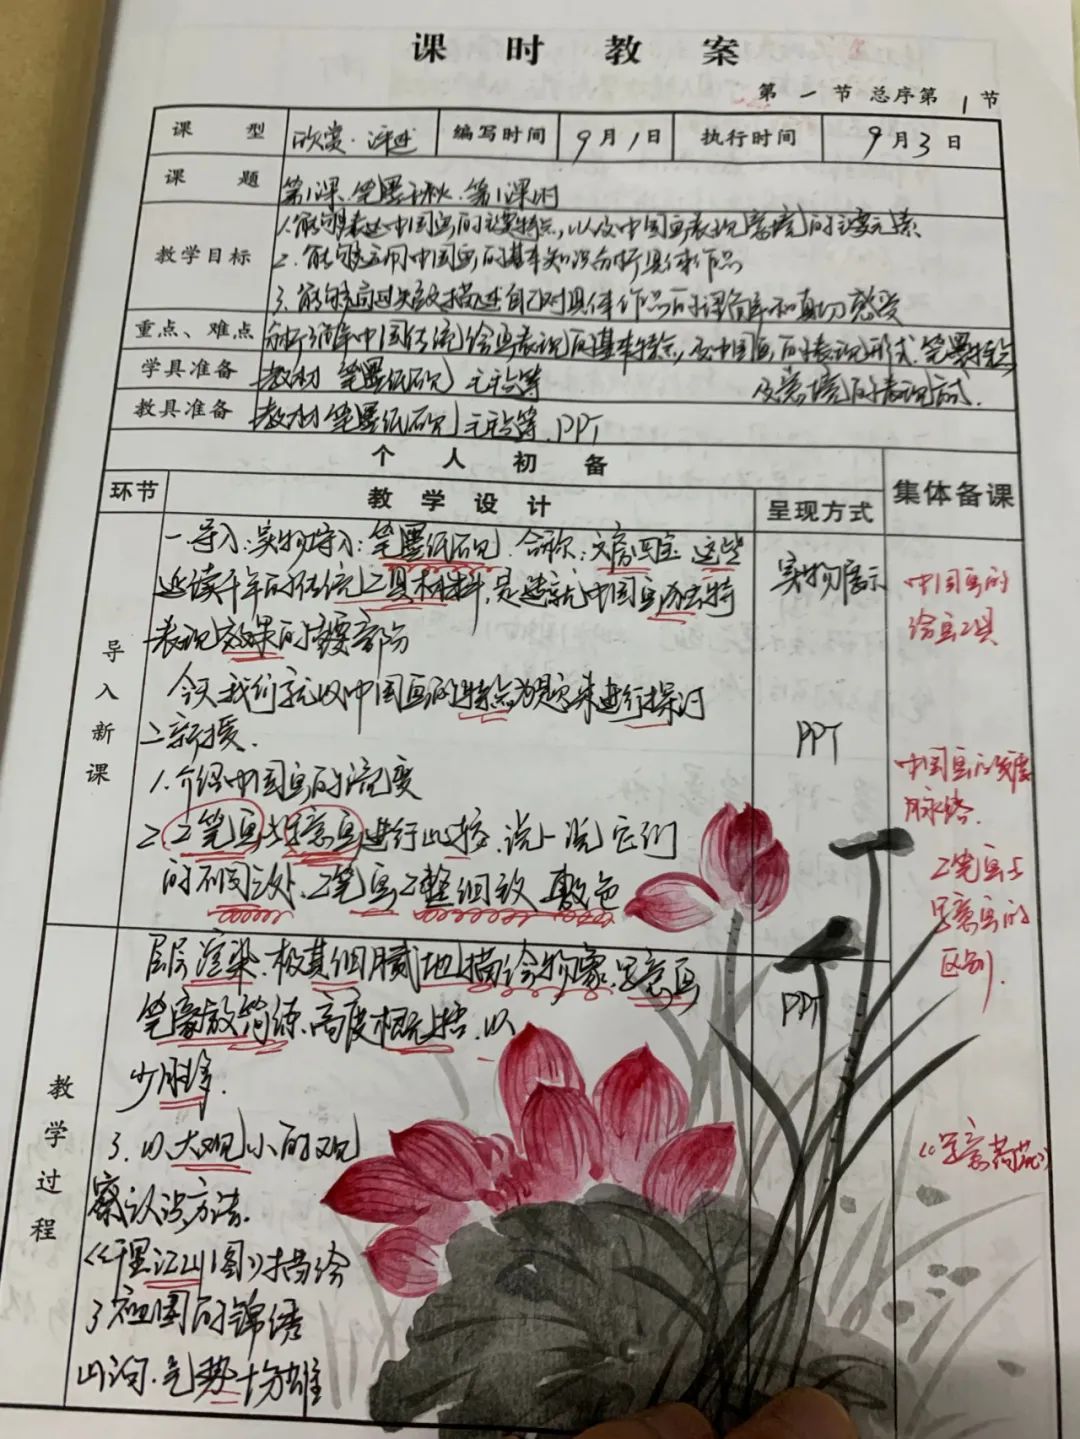 课时教案
第一节 总序第1节
课型 欣赏·评述 编写时间 9月1日 执行时间 9月3日
课题 第1课.笔墨千秋.第1课时
教学目标
1.能够表述中国画的主要特点,以及中国画表现意境的主要元素
2.能够运用中国画的基本知识分析具体作品
3.能够通过 描述自己对具体作品的 和真切感受
重点、难点 分析 中国传统绘画表现的基本特点,及中国画的表现形式.笔墨特点
及意境的表现方式.
学具准备 教材 笔墨纸砚 等
教具准备 教材 笔墨纸砚 等.PPT
个人初备
集体备课
环节 教学设计 呈现方式
导入新课
一.导入:实物导入:笔墨纸砚.合称:文房四宝 这些
延续千年的传统工具材料,是造就中国画独特
表现效果的重要部分
今天我们就以中国画的特点为题来进行探讨
二新授.
1.介绍中国画的流变
2.工笔画与写意画进行比较.说一说它们
的不同之处.工笔画工整细致 敷色
实物展示
PPT
中国画的
绘画工具
中国画的发展
脉络.
工笔画与
写意画的
区别.
教学过程
层层渲染.极其细腻地描绘物象.写意画
笔豪放简练.高度概括.以
少胜多.
3.以大观小的观
察认识方法.
《千里江山图》描绘
了祖国的锦绣
山河.气势十分雄
PPT
《写意荷花》